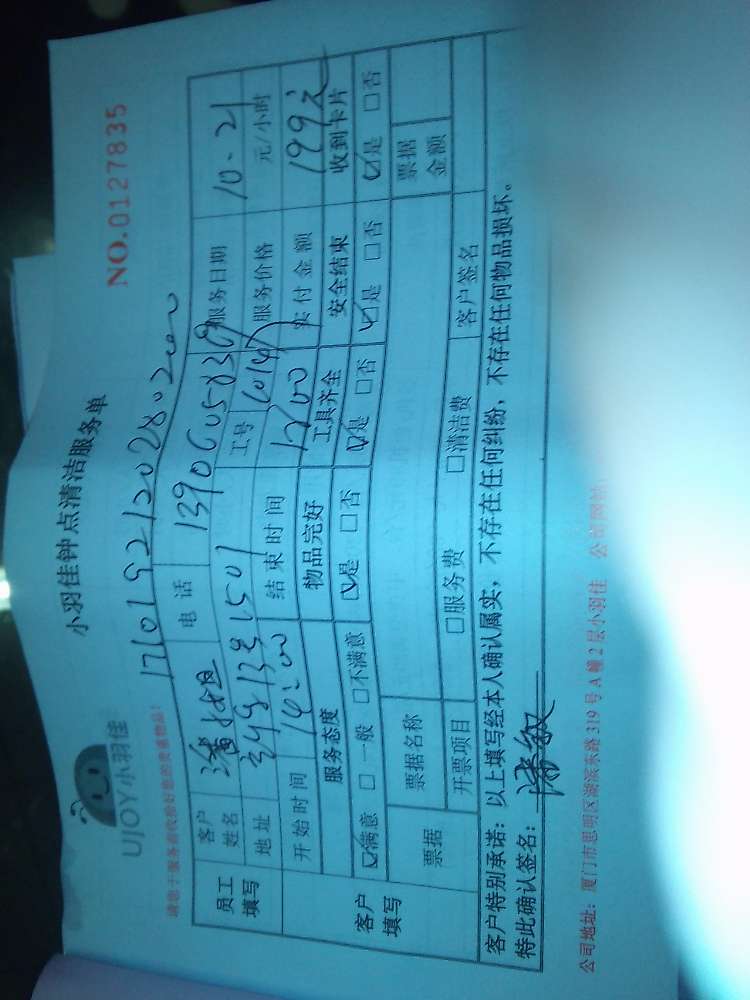 小羽佳钟点清洁服务单
NO.0127835
UJOY小羽佳
请您于服务前收拾好您的贵重物品!
员工填写 客户姓名 潘姐 电话 服务日期 10.21
地址 工号 服务价格 元/小时
客户填写 开始时间 14:00 结束时间 17:00 实付金额 199元
服务态度 物品完好 工具齐全 安全结束 收到卡片
☑满意 □一般 □不满意 ☑是 □否 ☑是 □否 ☑是 □否 ☑是 □否
票据 票据名称 票据金额
开票项目 □服务费 □清洁费 客户签名
客户特别承诺:以上填写经本人确认属实,不存在任何纠纷,不存在任何物品损坏。
特此确认签名:
公司地址:厦门市思明区湖滨东路319号A幢2层小羽佳 公司网站